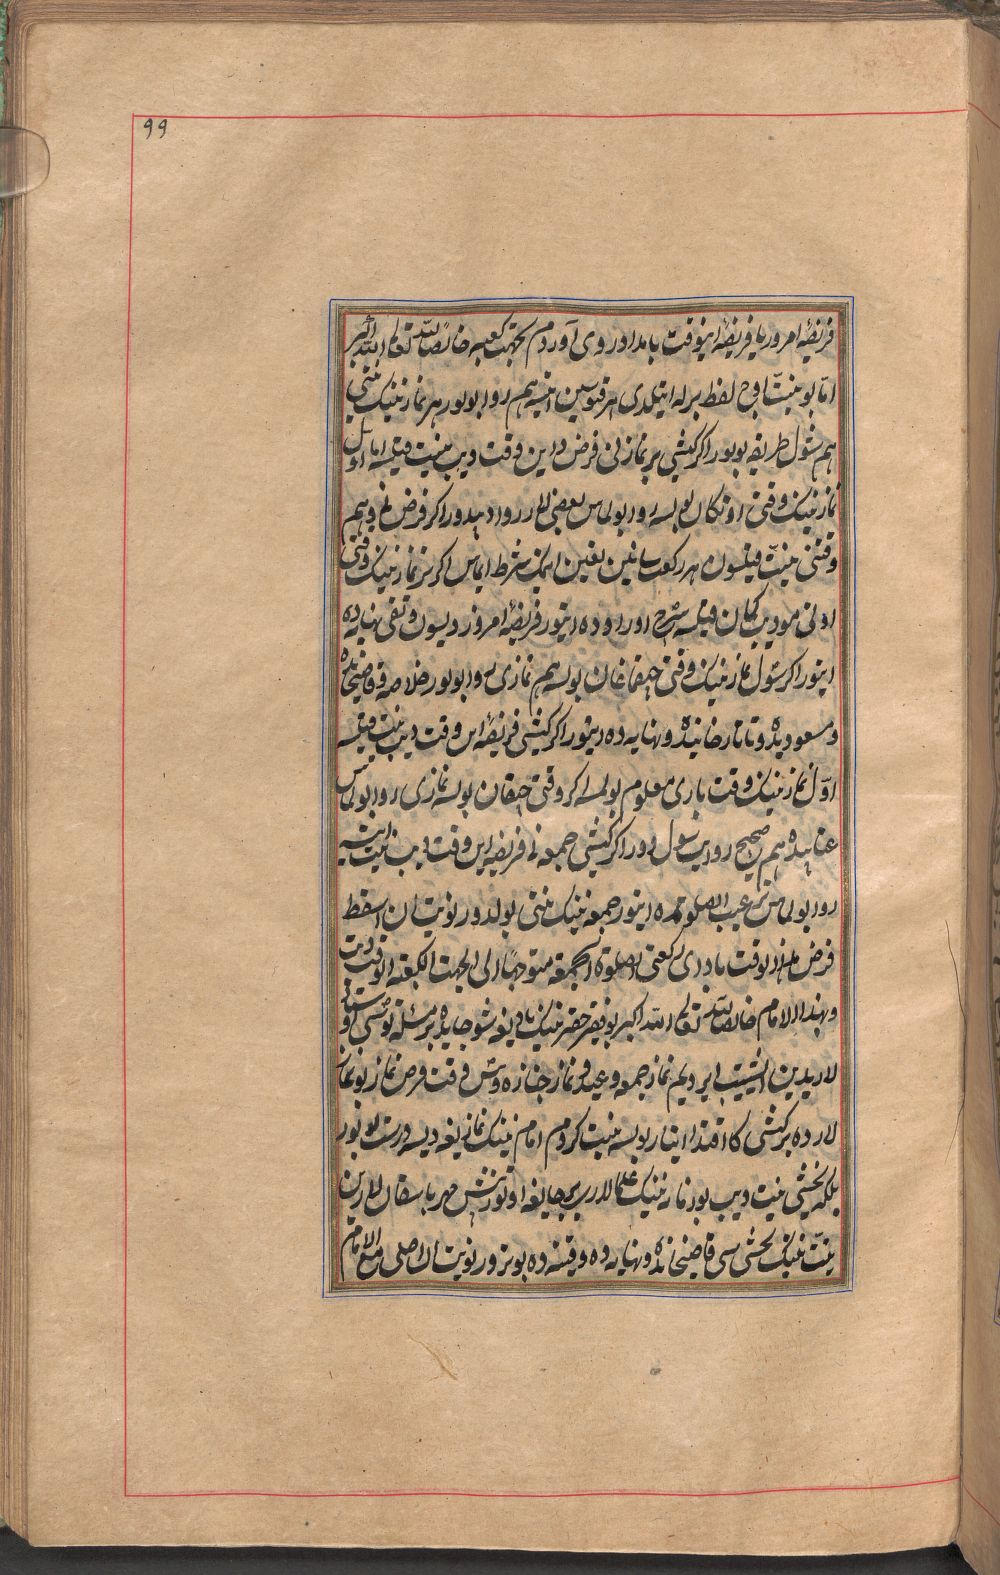 ۹۹
فریضهٔ امروز یا فریضه اینوقت بامداد روی آوردم بجهت کعبه خالصًا لله تعالی الله اکبر
امّا بو نیتّ اوچ لفظ برله ایتیلدی هر قیوسین ایتسه هم روا بولور هر نمازنینک نیتی
هم شول طریقه بولور اکر کیشی بر نمازنی فرض این وقت دیب نیت قیلسه اما اول
نمازنینک وقتی اوتکان بولسه روا بولماس بعضیلار روا دیدور اکر فرض نی و هم
وقتنی نیتّ قیلسون هر رکعت سانین تعیین ایتمک شرط ایماس اکر بر نمازنینک وقتی
اوتی مو دیب کمان قیلسه شرح اوراد ده ایتور فریضهٔ امروز دیسون وقتی نهایه ده
ایتور اکر شول نمازنینک وقتی چیقماغان بولسه هم نمازی روا بولور خلاصه و قاضیخانده
و مسعودیده و تاتارخانیده و نهایه ده ایتور اکر کیشی فریضهٔ این وقت دیب نیت قیلسه
اوّل نمازنینک وقت باری معلوم بولسه اکر وقتی چیقان بولسه نمازی روا بولماس
عتابیده هم صحیح روایت شول دور اکر کیشی جمعه نی فریضه این وقت دیب نیت ایتسه
روا بولماس ترغیب الصلوة ده ایتور جمعه نینک نیتی بولدور نویت ان اسقط
فرض هذا الوقت بادای رکعتی الصلوة الجمعه متوجهًا الی الجهت الکعبه اقتدیت
و بهذا الامام خالصًا لله تعالی الله اکبر بو فقیر حقیر نینک یادیغه شو جایده بر مسئله توشتی
لاریدین ایشیتیب ایردیم نماز جمعه و عید و نماز جنازه و بش وقت فرض نماز بو نماز
لارده بر کیشی کا اقتدا ایتار بولسه نیت کردم امام نینک نمازیغه دیسه درست بولور
بلکه یخشی نیت دیب بو زمانه نینک علمالاری بر جایغه اوتوروشمیش مهر باسقان لاردین
نیتّ نینک یخشی سی قاضیخانده و نهایه ده وقنیه ده بو تورور نویت ان اصلی مع الامام